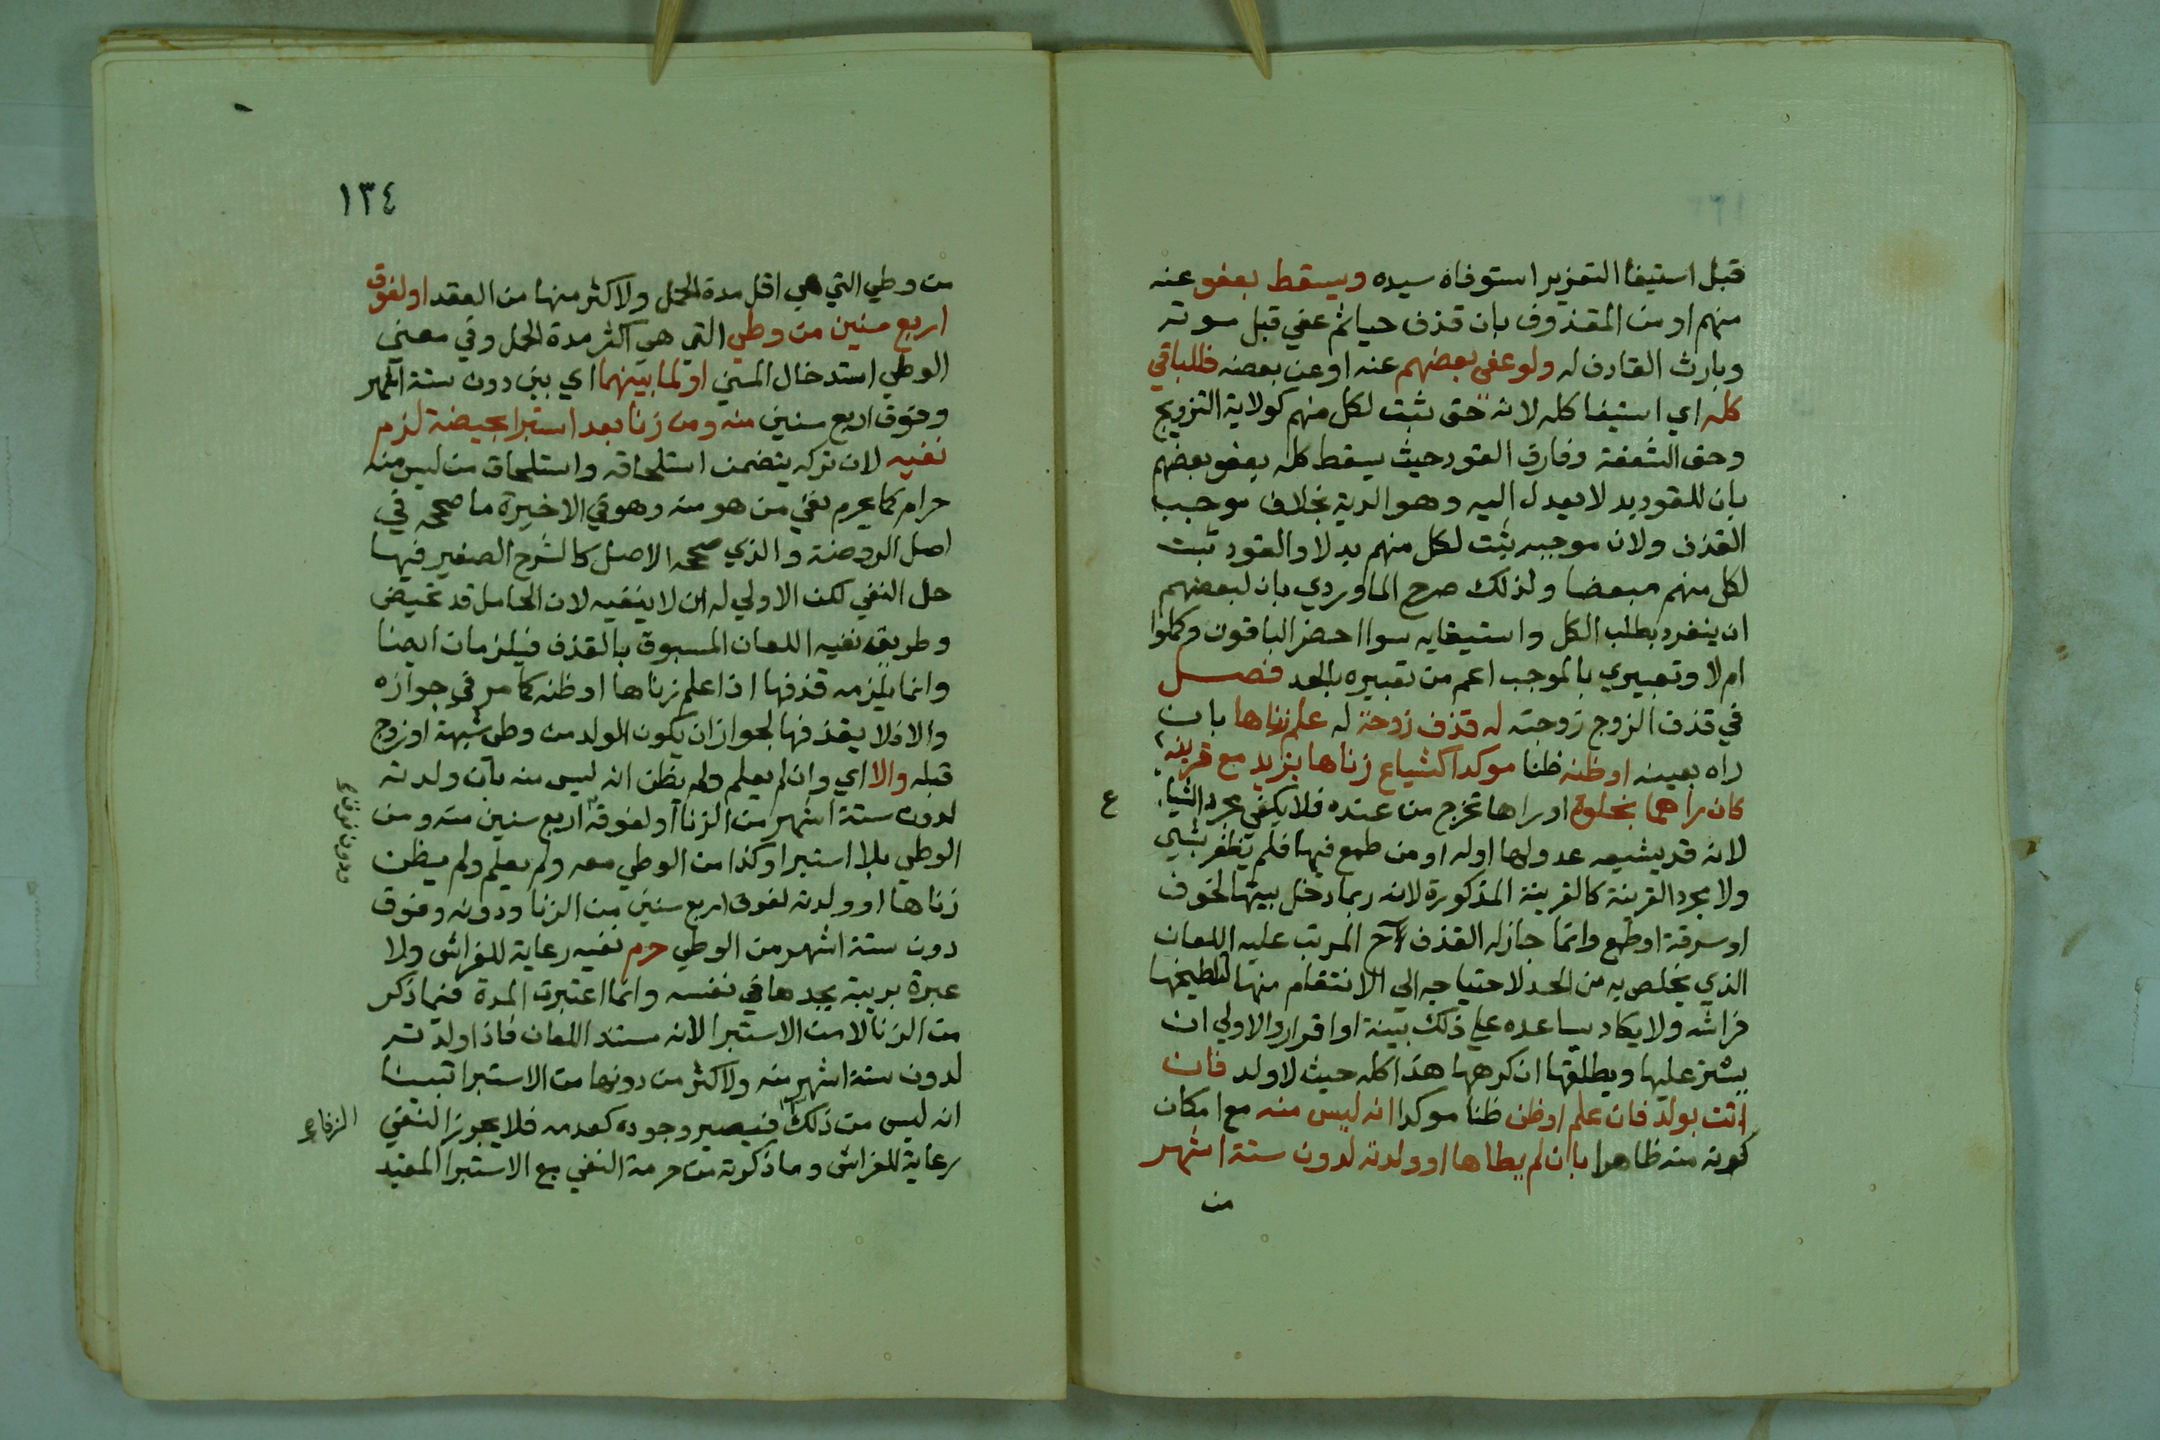 قبل استيفا التعزير استوفاه سيده ويسقط بعفو عنه
منهم او من المقذوف بان قذف حيا ثم عفي قبل موته
وبارث القاذف له ولو عفي بعضهم عنه او عن بعضه فللباقي
كله اي استيفا كله لانه حق ثبت لكل منهم كولاية التزويج
وحق الشفعة وفارق القود حيث يسقط كله بعفو بعضهم
بان للقود بدلا يعدل اليه وهو الدية بخلاف موجب
القذف ولان موجبه يثبت لكل منهم بدلا والقود ثبت
لكل منهم مبعضا ولذلك صرح الماوردي بان لبعضهم
ان ينفرد بطلب الكل واستيفايه سوا احضر الباقون وكملوا
ام لا وتعبيري بالموجب اعم من تعبيره بالحد فصل
في قذف الزوج زوجته له قذف زوجة له علم زناها بان
راه بعينه او ظنه ظنا موكدا كشياع زناها بزيد مع قرينة
كان راهما بخلوة او راها تخرج من عنده فلا يكفي مجرد الشياع
لانه قد يشيعه عدولها اوله او من طمع فيها فلم يظفر بشي
ولا مجرد القرينة كالقرينة المذكورة لانه ربما دخل بيتها لخوف
او سرقة او طمع وانما جاز له القذف المرتب عليه اللعان
الذي يخلص به من الحد لاحتياجه الي الانتقام منها لتلطيخها
فراشه ولا يكاد يساعده علي ذلك بينة او اقرار والاولي ان
يستر عليها ويطلقها ان كرهها هذا كله حيث لا ولد فان
اتت بولد فان علم او ظن ظنا موكدا انه ليس منه مع امكان
كونه منه ظاهرا بان لم يطاها او ولدته لدون ستة اشهر
من
١٣٤
من وطي التي هي اقل مدة الحمل ولاكثر منها من العقد او لفوق
اربع سنين من وطي التي هي اكثر مدة الحمل وفي معني
الوطي استدخال المني او لما بينهما اي بين دون ستة اشهر
وفوق اربع سنين منه ومن زنا بعد استبرا بحيضة لزم
نفيه لان تركه يتضمن استلحاقه واستلحاق من ليس منه
حرام كما يحرم نفي من هو منه وهو في الاخيرة ما صححه في
اصل الروضة والذي صححه الاصل كالشرح الصغير فيها
حل النفي لكن الاولي له ان لا ينفيه لان الحامل قد تحيض
وطريق نفيه اللعان المسبوق بالقذف فيلزمان ايضا
وانما يلزمه قذفها اذا علم زناها او ظنه كما مر في جوازه
والا فلا يقذفها لجواز ان يكون الولد من وطي شبهة او زوج
قبله والا اي وان لم يعلم ولم يظن انه ليس منه بان ولدته
لدون ستة اشهر من الزنا او لفوقه اربع سنين منه ومن
الوطي بلا استبرا وكذا من الوطي معه ولم يعلم ولم يظن
زناها او ولدته لفوق اربع سنين من الزنا ودونه وفوق
دون ستة اشهر من الوطي حرم نفيه رعاية للفراش ولا
عبرة بريبة يجدها في نفسه وانما اعتبرت المدة فيما ذكر
من الزنا لا من الاستبرا لانه مستند اللعان فاذا ولدته
لدون ستة اشهر منه ولاكثر من دونها من الاستبرا تبينا
انه ليس من ذلك فيصير وجوده كعدمه فلا يجوز النفي
الزنا
رعاية للفراش وما ذكرته من حرمة النفي مع الاستبرا المقيد